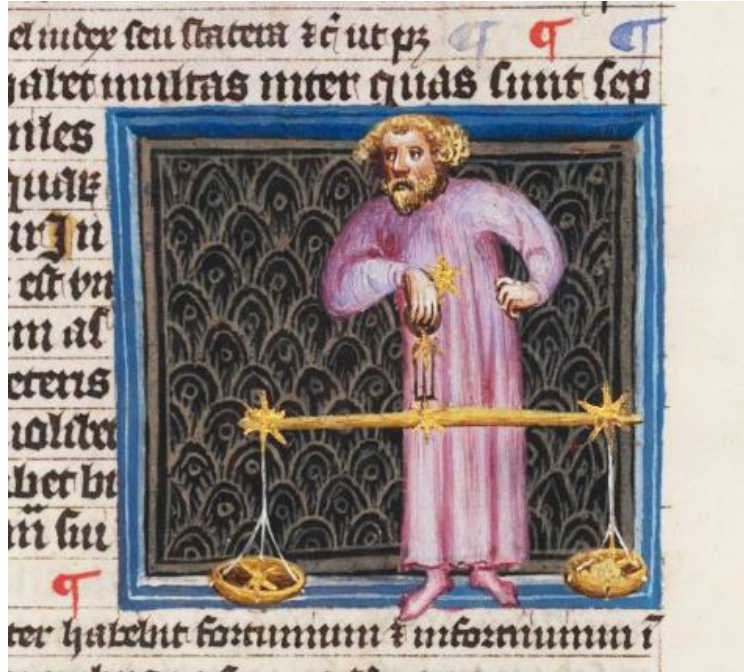 el index seu statera
habet multas inter quas sunt sep
niles
quar
ur In
est vn
m al
ceteris
uolibet
bet bi
sui
ter habebit fortunium & infortunium